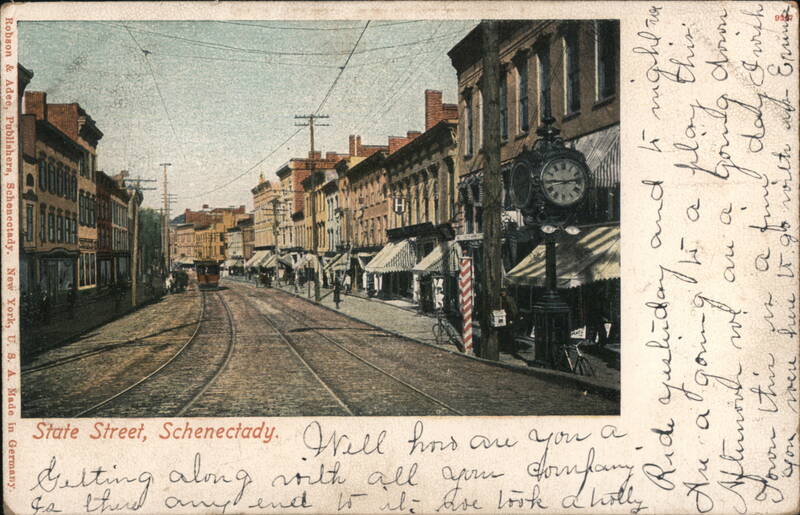 Robson & Adee, Publishers, Schenectady. New York, U. S. A. Made in Germany.
H
State Street, Schenectady.
Well how are you a
Getting along with all your Company
Is there any end to it. we took a trolly
Ride yesterday and to night
Are a going to a play this
Afternoon we are a going down
Town this is a fine day I wish
You were here to go with us Erma